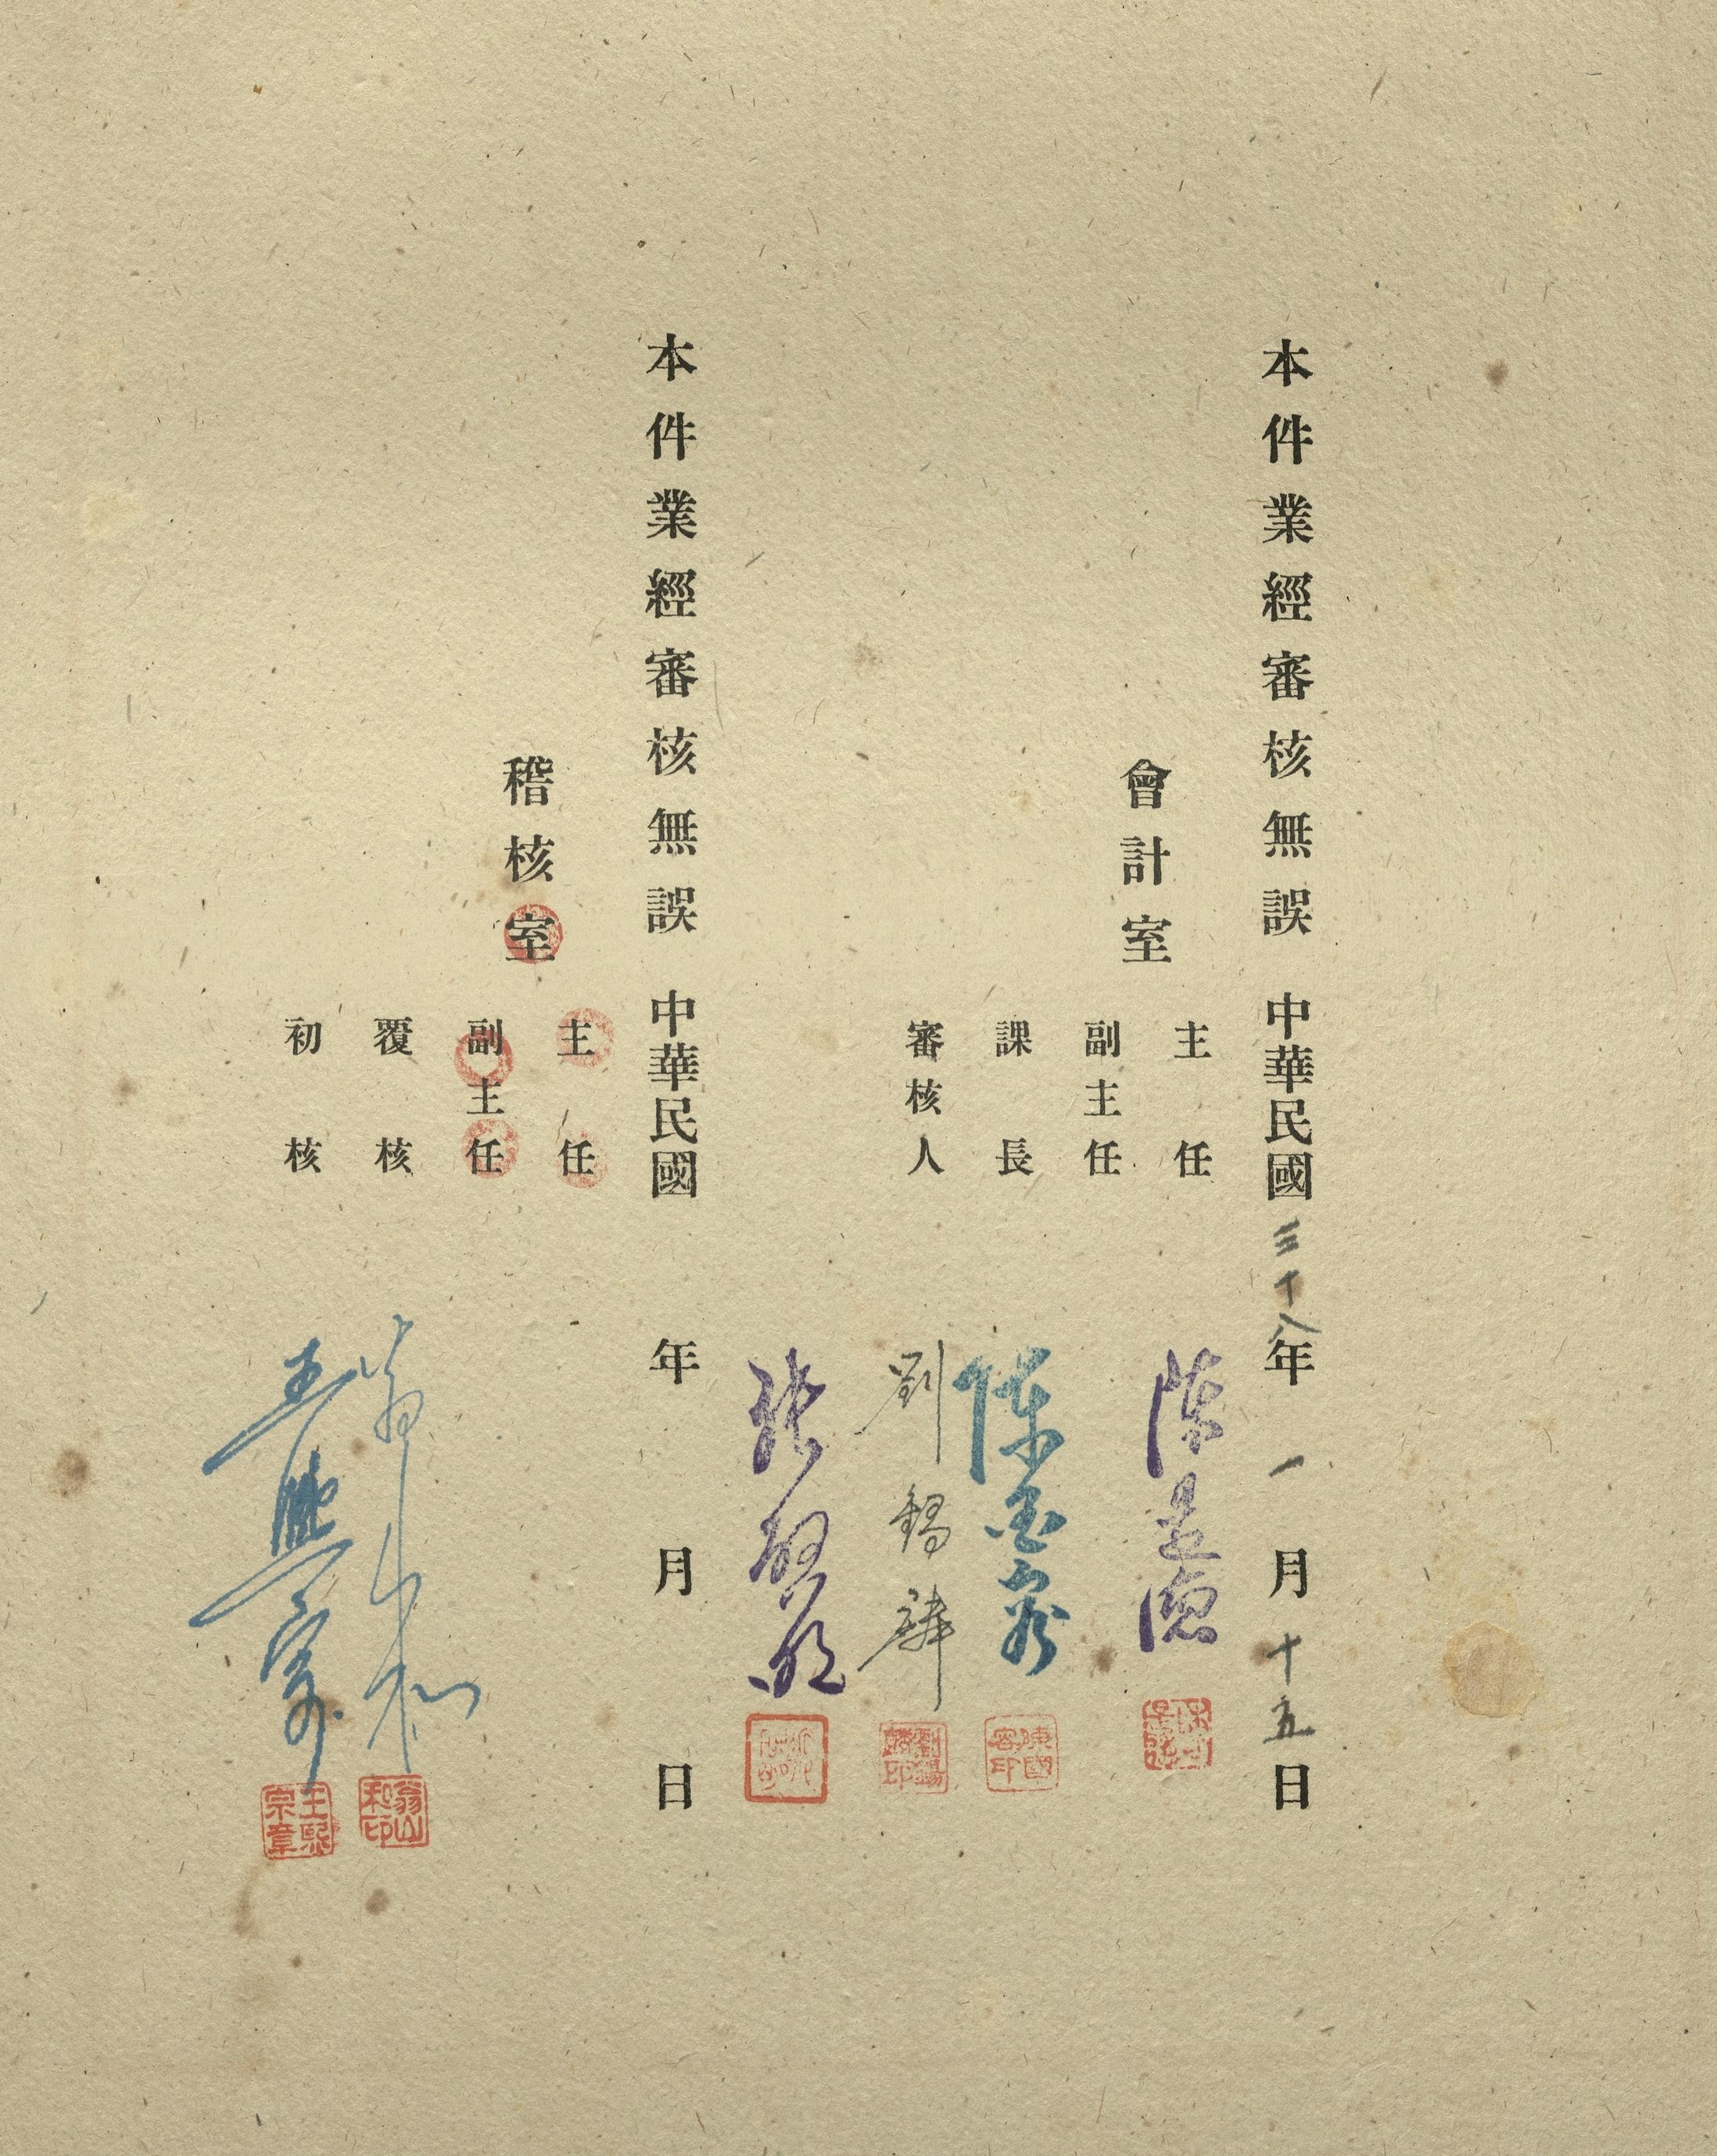 本件業經審核無誤 中華民國三十八年一月十五日
會計室
主任
副主任
課長 陳國容
審核人 劉錫麟
陳國容印
劉錫麟印
本件業經審核無誤 中華民國 年 月 日
稽核室
主任
副主任
覆核 翁山和
初核 王熙宗
翁山和印
王熙宗章